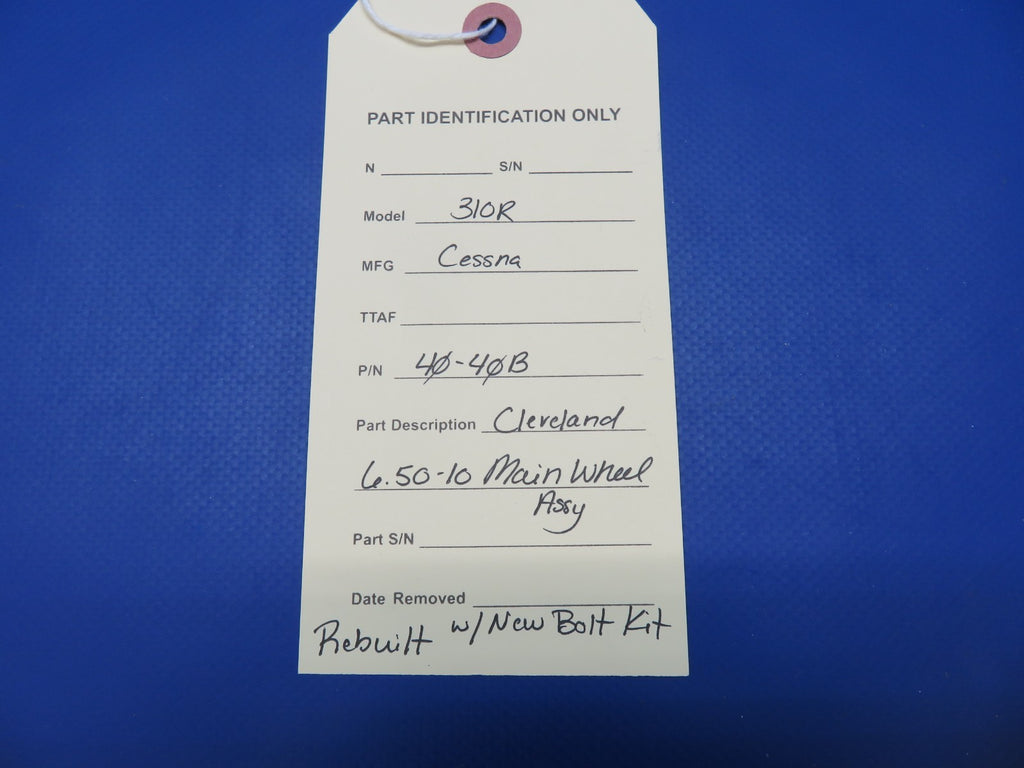 PART IDENTIFICATION ONLY
N S/N
Model 310R
MFG Cessna
TTAF
P/N 40-40B
Part Description Cleveland
6.50-10 Main Wheel
Assy
Part S/N
Date Removed
Rebuilt w/ New Bolt Kit